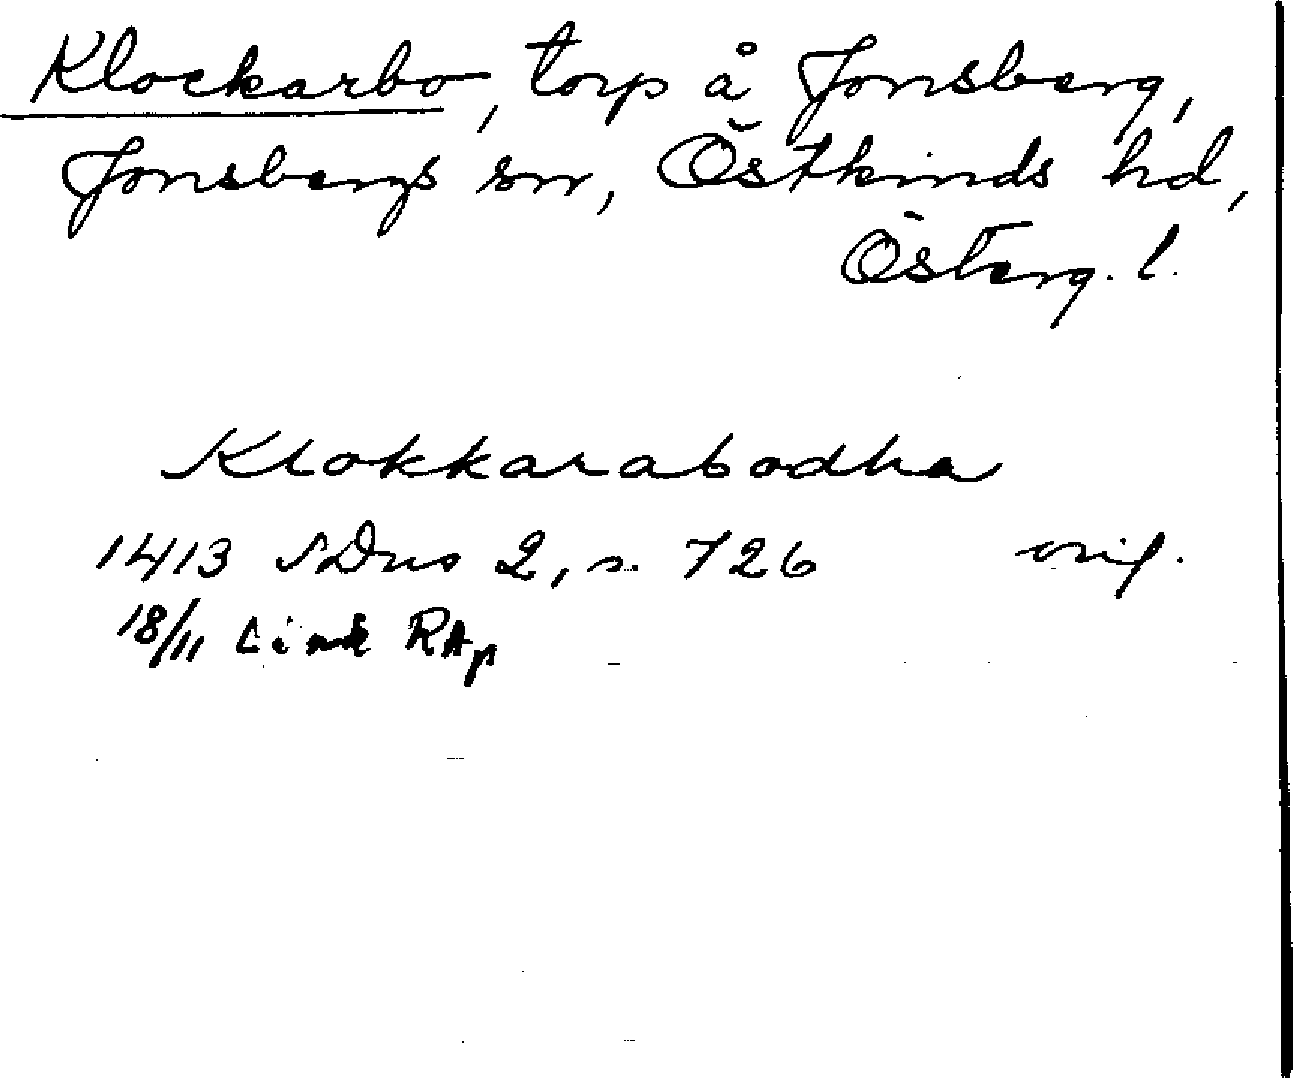 Klockarbo, torp å Jonsberg,
Jonsbergs sn, Östkinds hd,
Österg. l.
Klokkarabodha
1413 SDns 2, s. 726 orig.
18/11 Link RAp